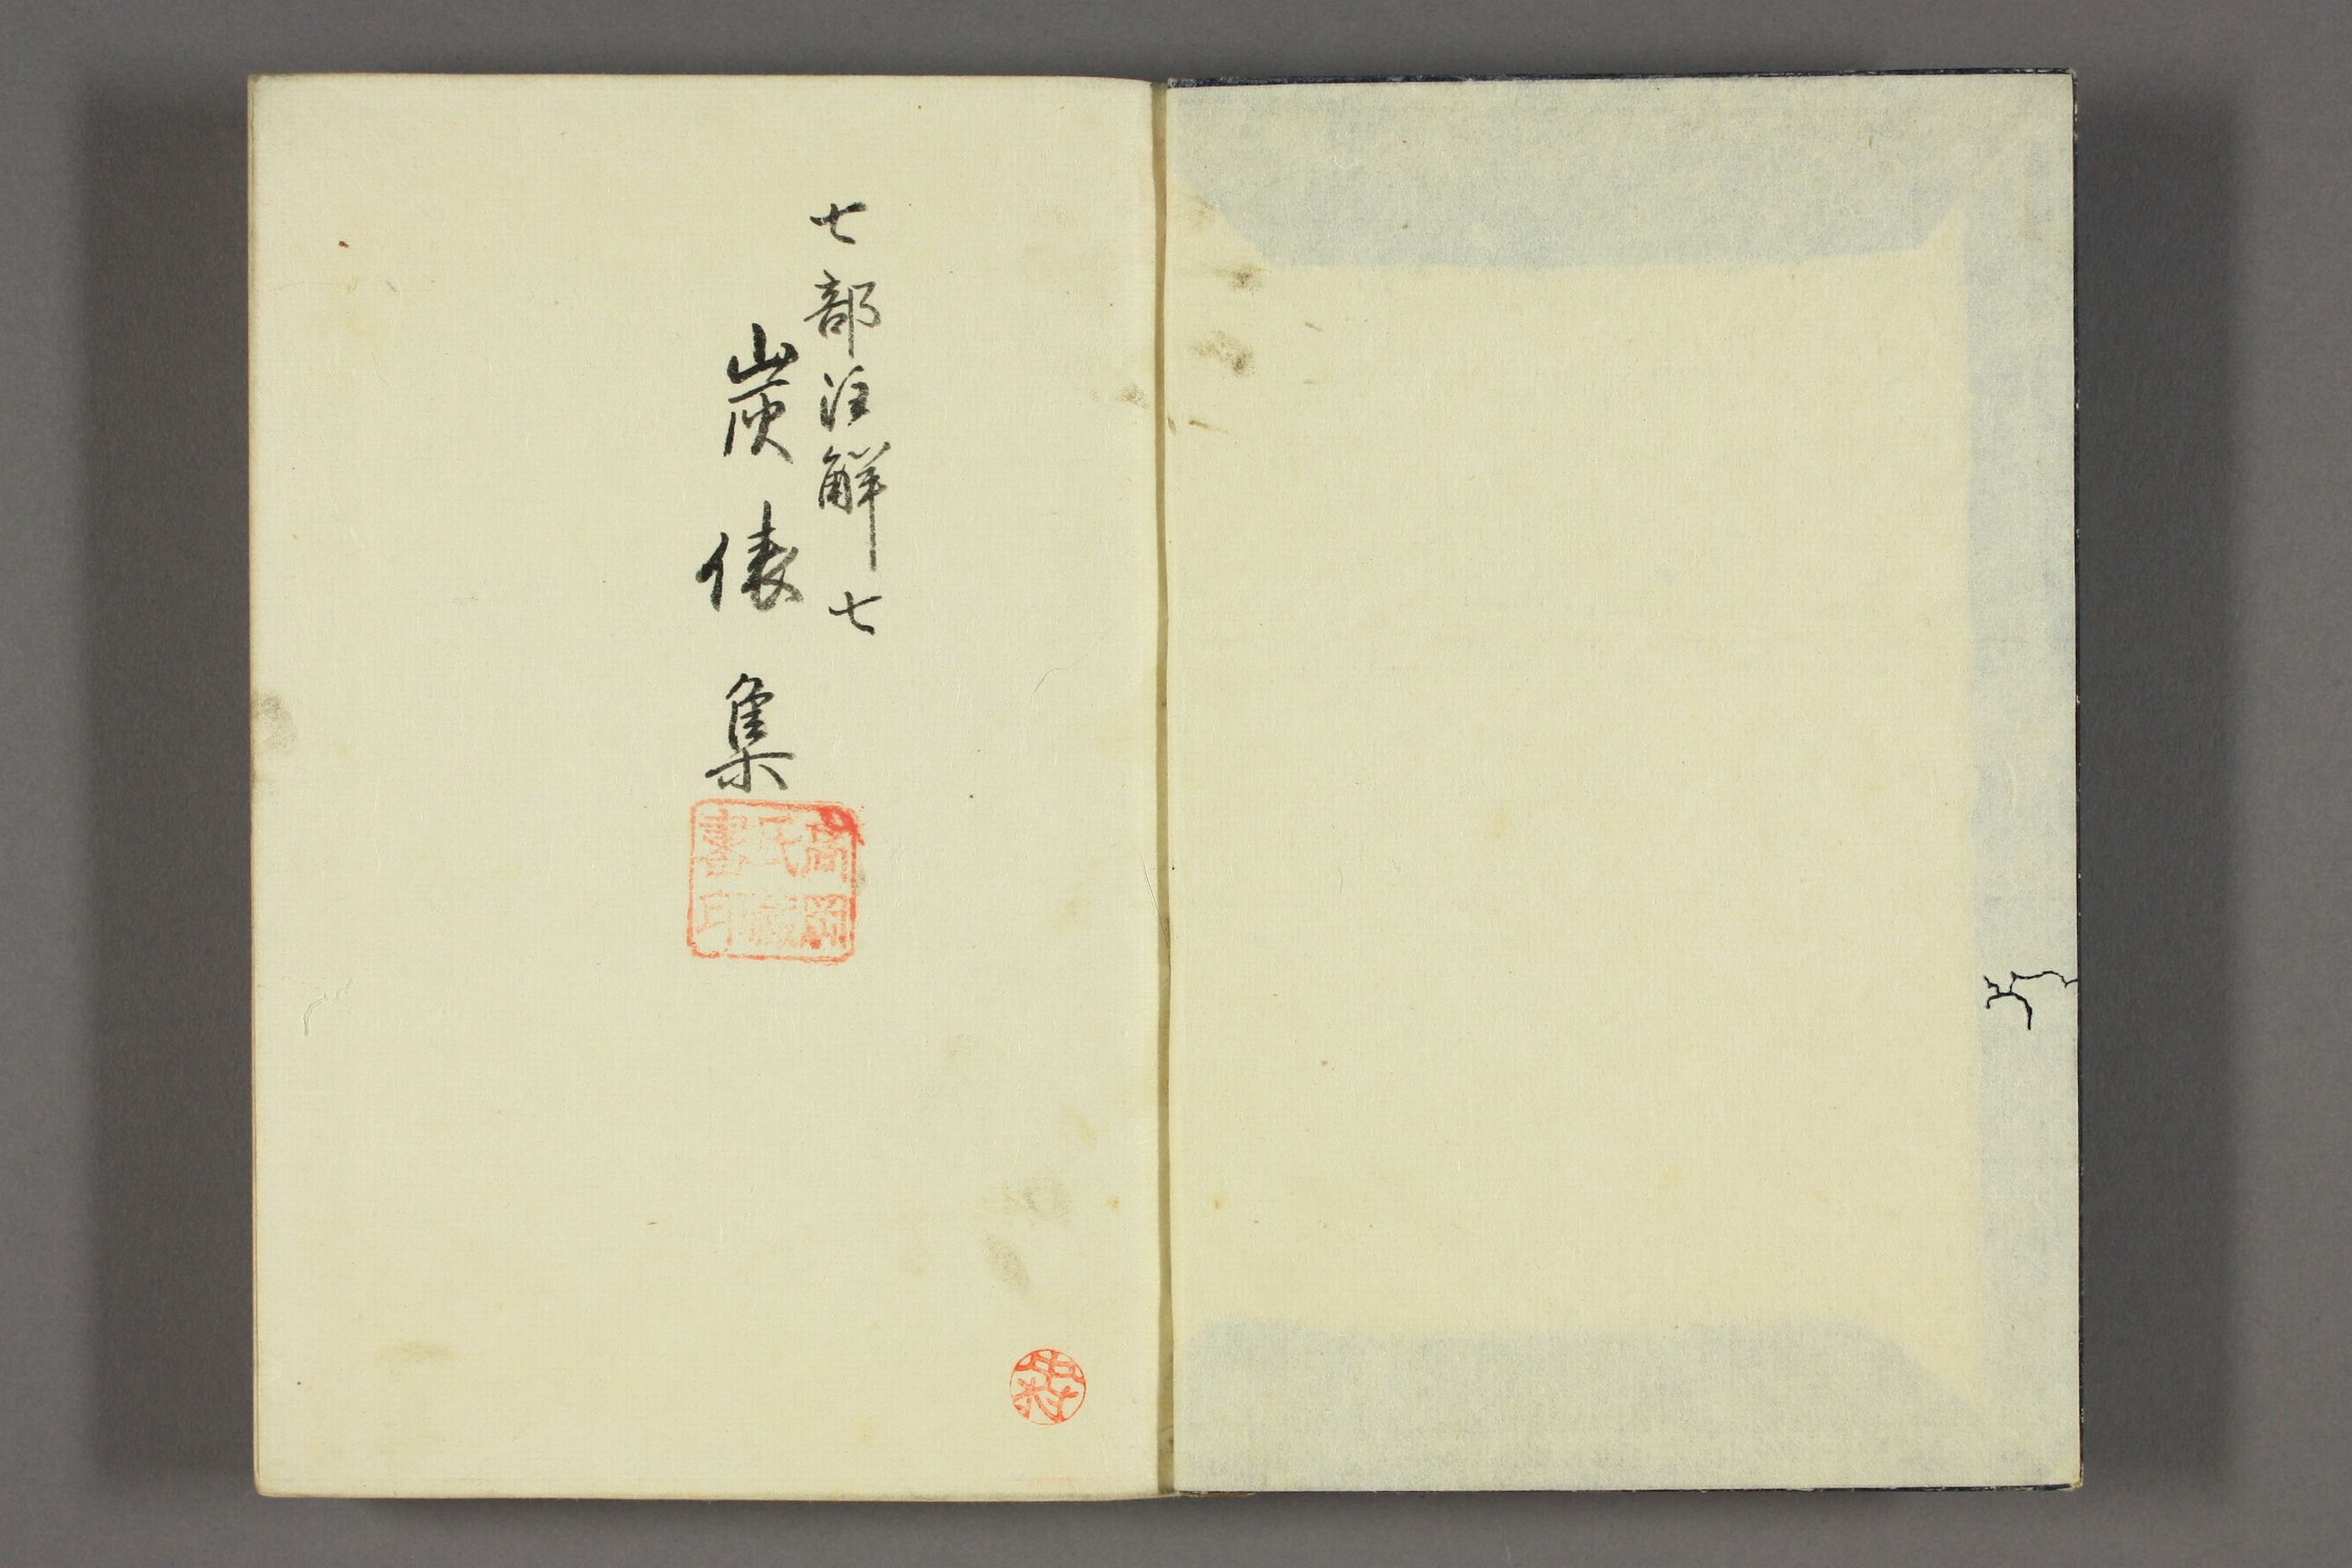 七部注解 七
炭俵集
高岡
氏藏
書印